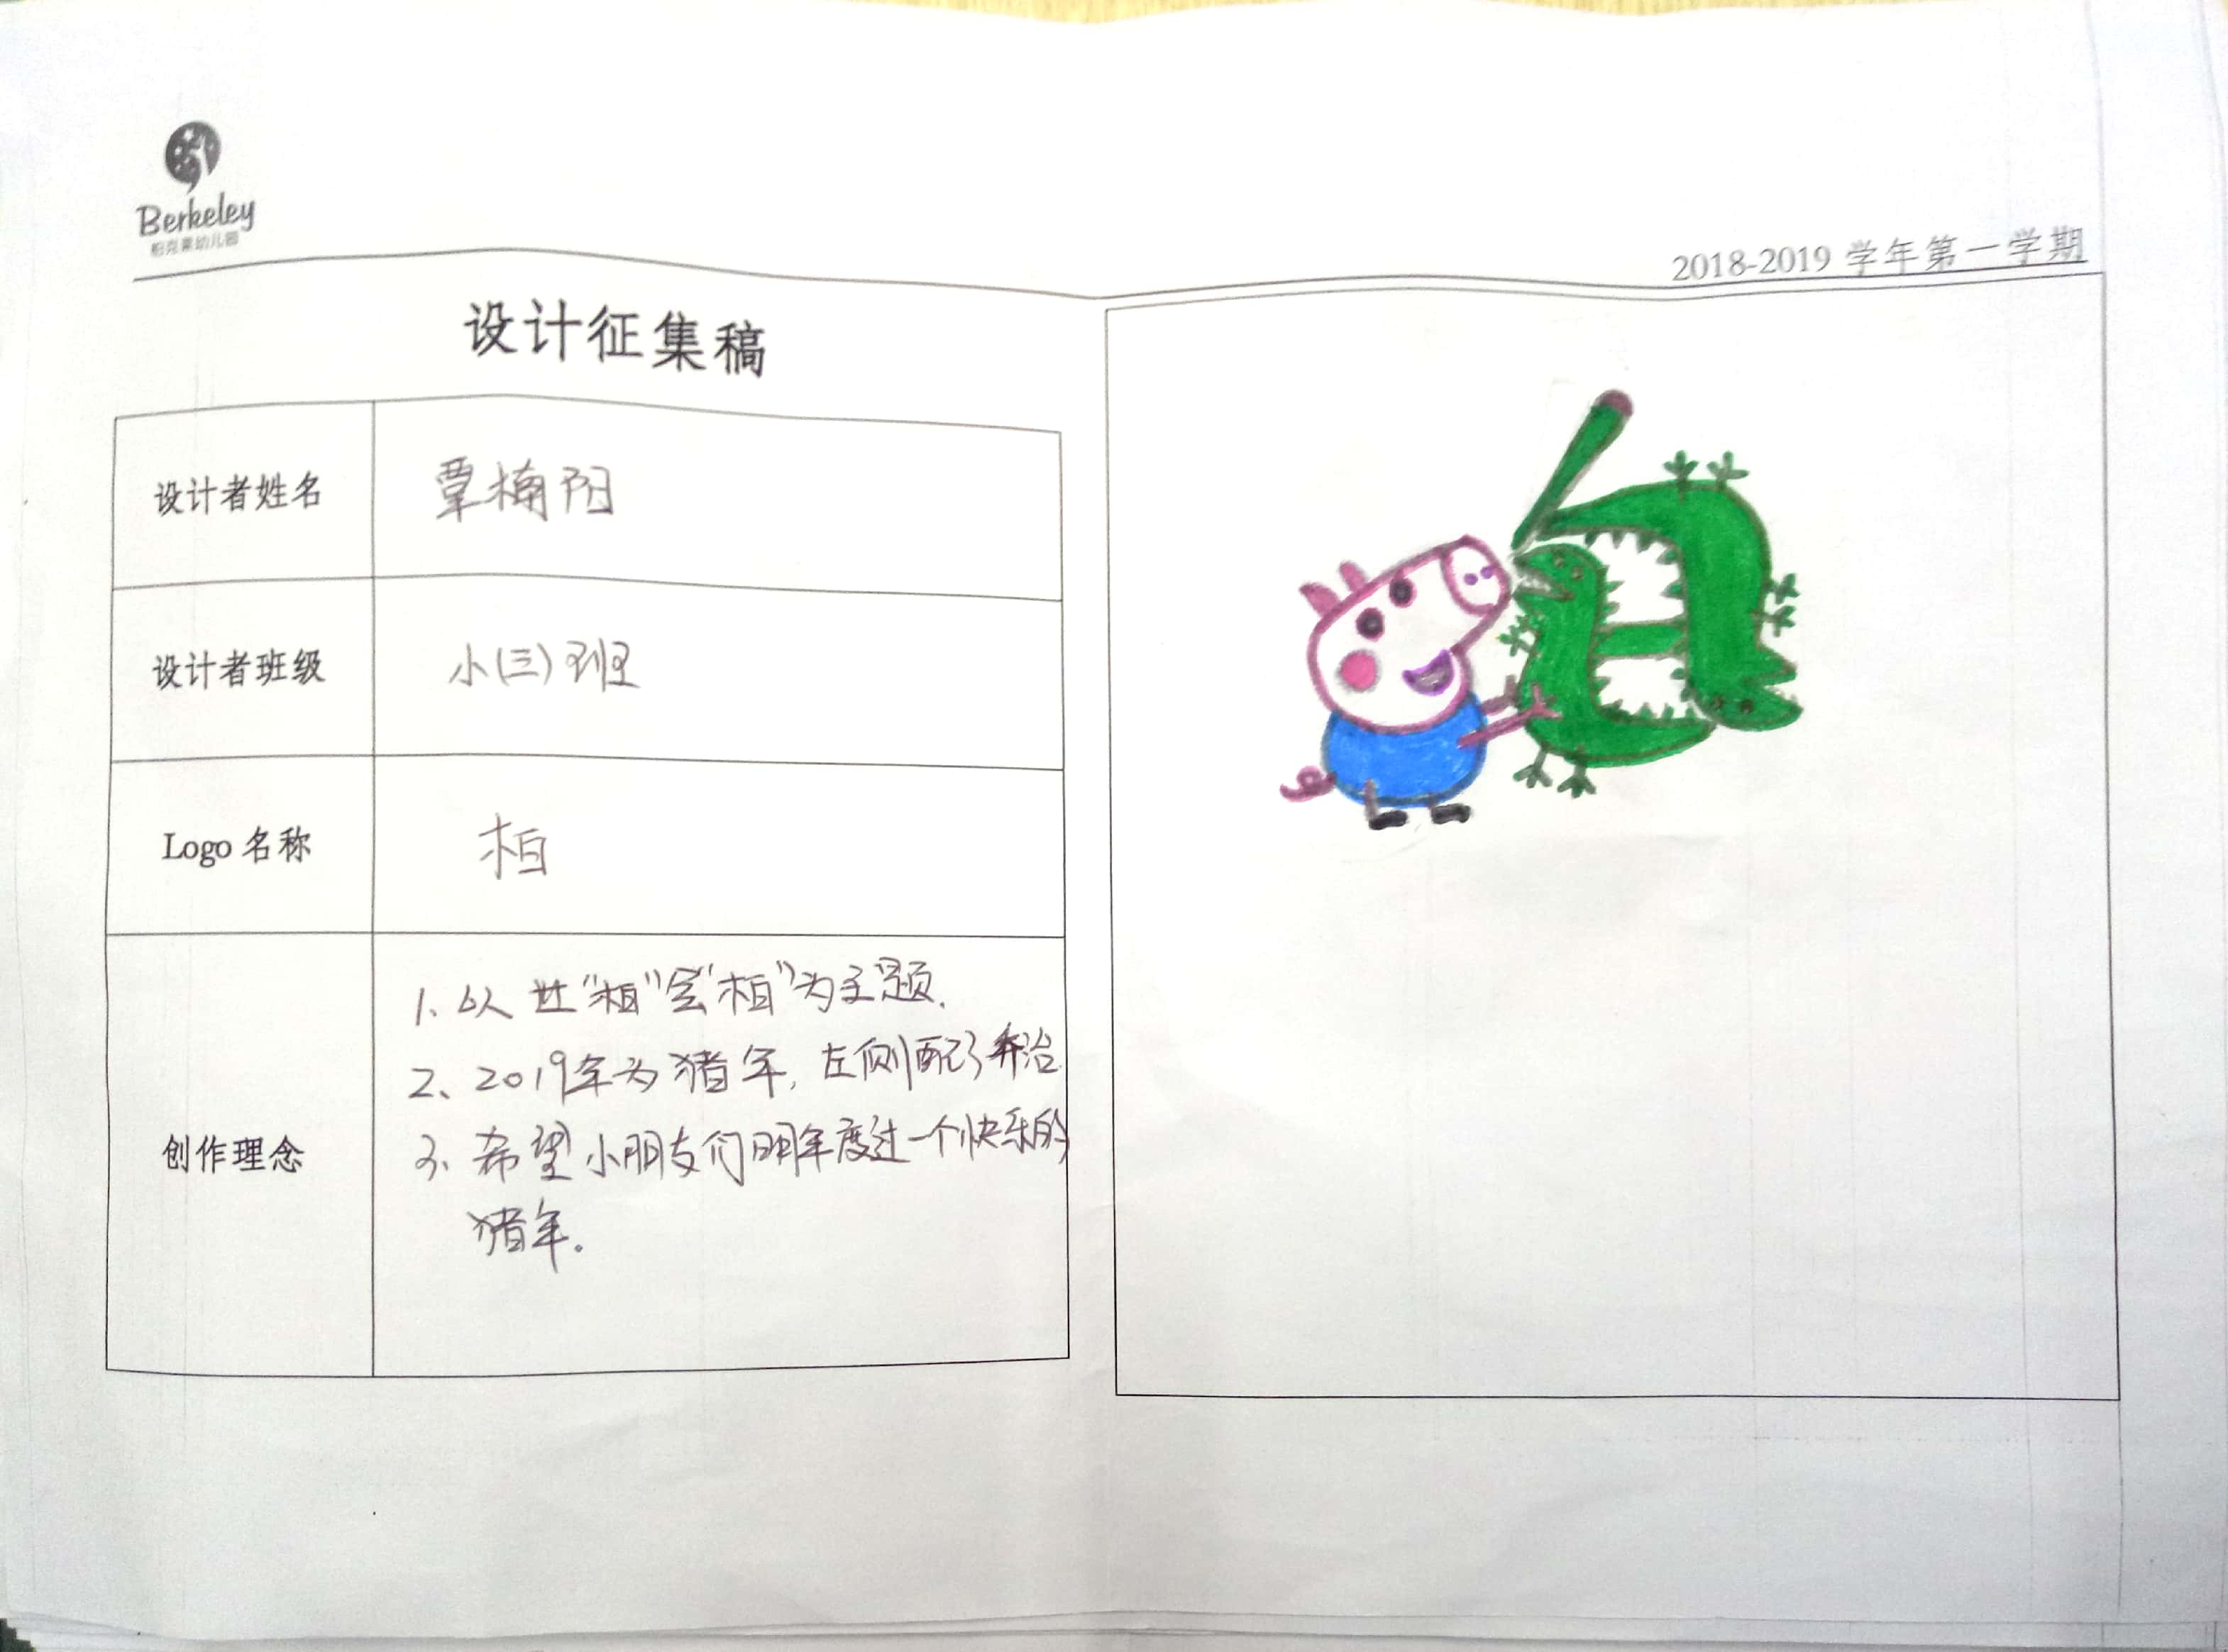 Berkeley
柏克莱幼儿园
2018-2019 学年第一学期
设计征集稿
设计者姓名
覃楠阳
设计者班级
小(三)班
Logo 名称
柏
创作理念
1、以世“柏”会“柏”为主题.
2、2019年为猪年,左侧配了乔治
3、希望小朋友们明年度过一个快乐的
猪年。